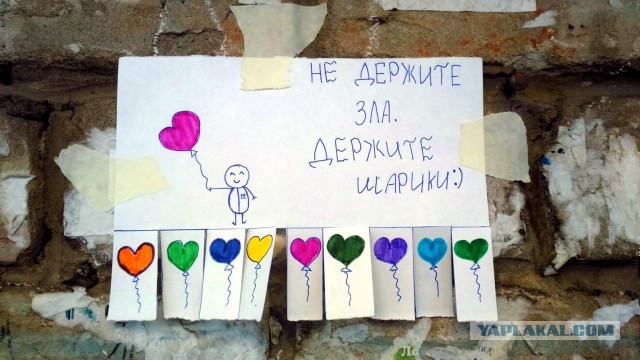 НЕ ДЕРЖИТЕ
ЗЛА.
ДЕРЖИТЕ
ШАРИКИ:)
YAPLAKAL.COM